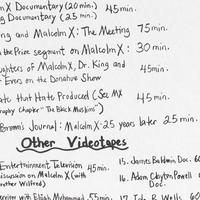 X Documentary (20 min.) 45 min.
Documentary (25 min.)
ing and Malcolm X: The Meeting 75 min.
the Prize segment on Malcolm X: 30 min.
ughters of Malcolm X, Dr. King and
Evers on the Donahue Show 45 min.
ate that Hate Produced (See MX
ography Chapter "The Black Muslims") 45 min.
Brown's Journal: Malcolm X-25 years later 25 min.
Other Videotapes
Entertainment Television
iscussion on Malcolm X (with
other Wilfred) 45 min.
erview with Elijah Muhammad 55 min.
15. James Baldwin Doc. 60
16. Adam Clayton Powell
Doc.
17. Ida B. Wells 60